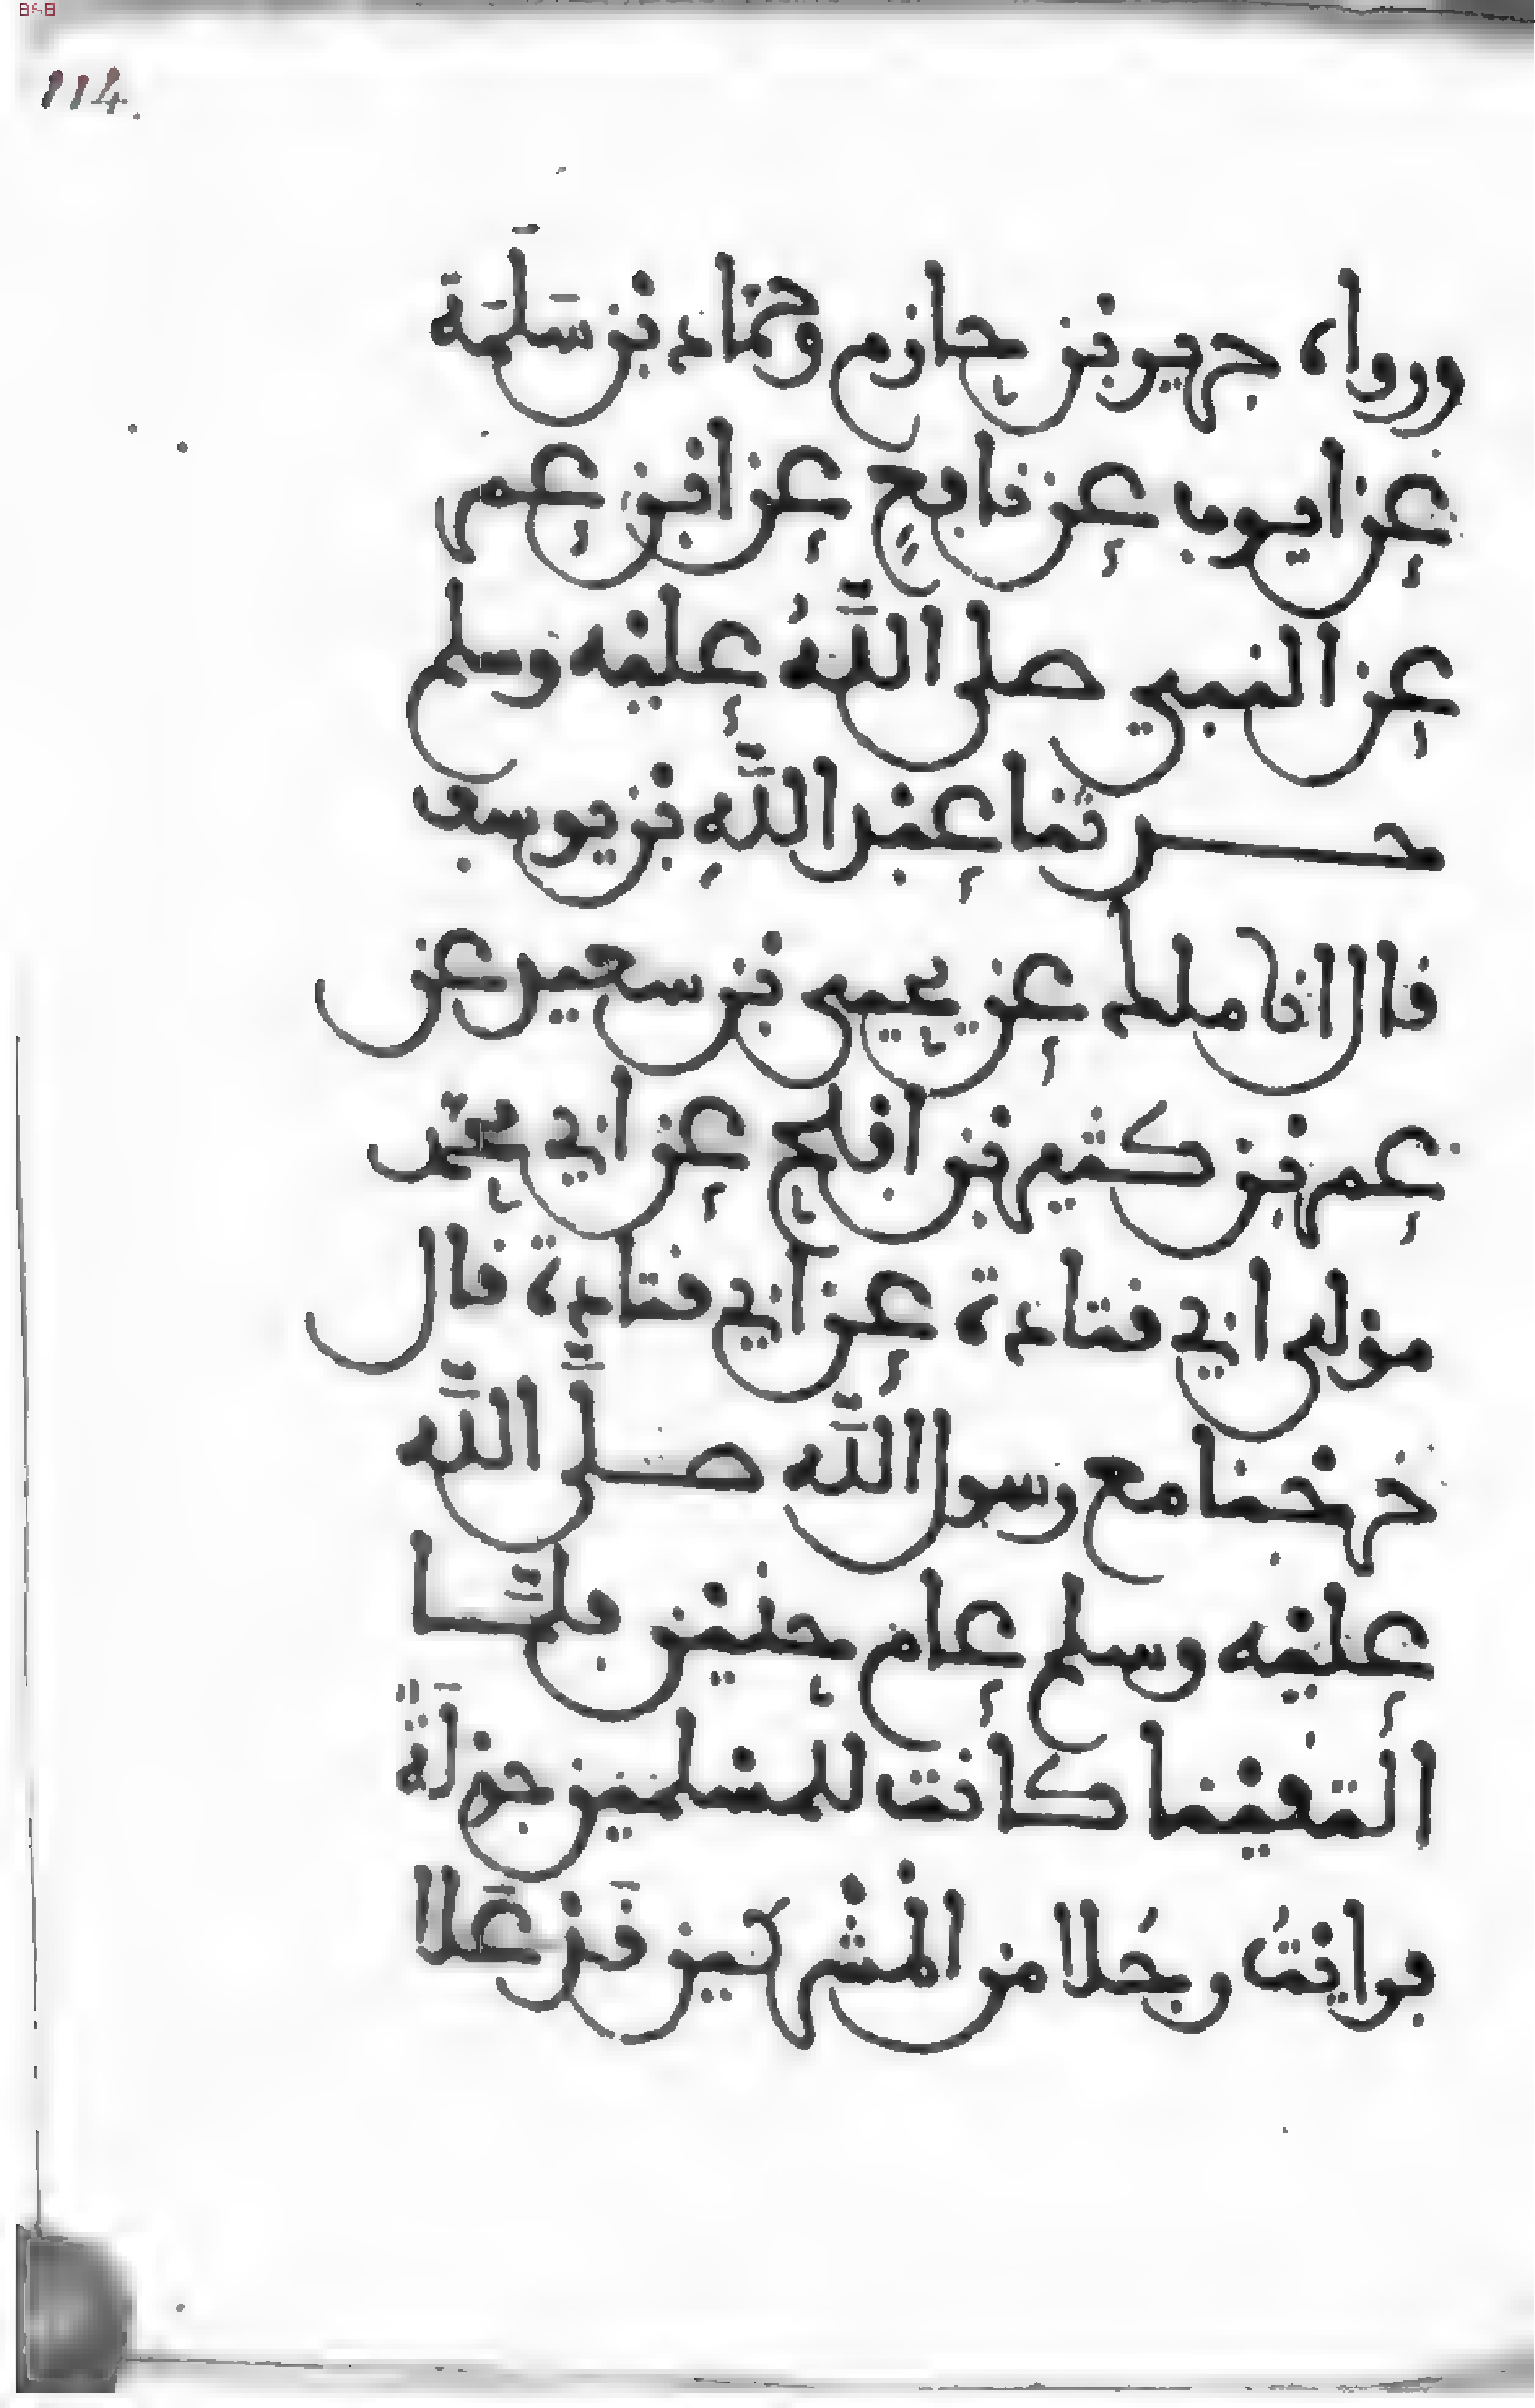 114.
ورواه جرير بن حازم وحماد بن سَلَمَة
عن ايوب عن نافع عن ابن عمر
عن النبي صلى اللّٰهُ عليه وسلم
حدثنا عبد اللّٰهِ بن يوسف
قال انا ملك عن يحيى بن سعيد عن
عمر بن كثير بن افلح عن ابي محمد
مولى ابي قتادة عن ابي قتادة قال
خرجنا مع رسول اللّٰه صلَّى اللّٰه
عليه وسلم عام حنين فلمَّا
التقينا كانت للمسلمين جولَةٌ
فرايتُ رجُلا من المشركين قَد عَلا